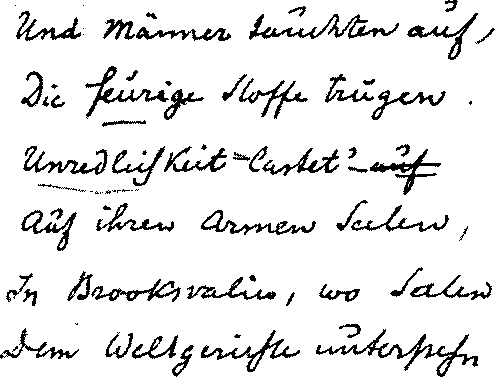 Und Männer tauchten auf,
Die feurige Stoffe trugen.
Unredlichkeit lastet' auf
Auf ihren armen Seelen,
In Brooksvalin, wo Seelen
Dem Weltgerichte unterstehn